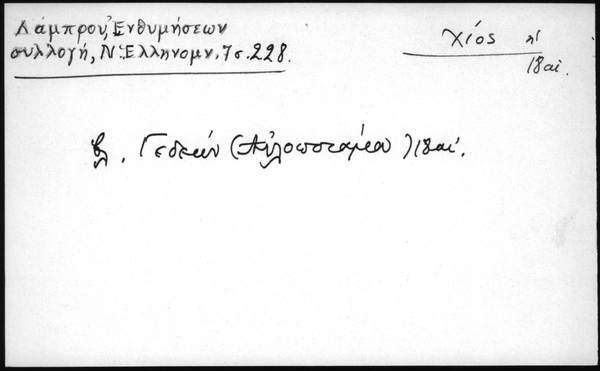 Λάμπρου, Ἐνθυμήσεων
συλλογή, Ν. Ἑλληνομν. 7 σ. 228.
Χίος
18 αἰ.
βλ. Γεδεών (Αἰλοποταμέα) 18 αἰ.